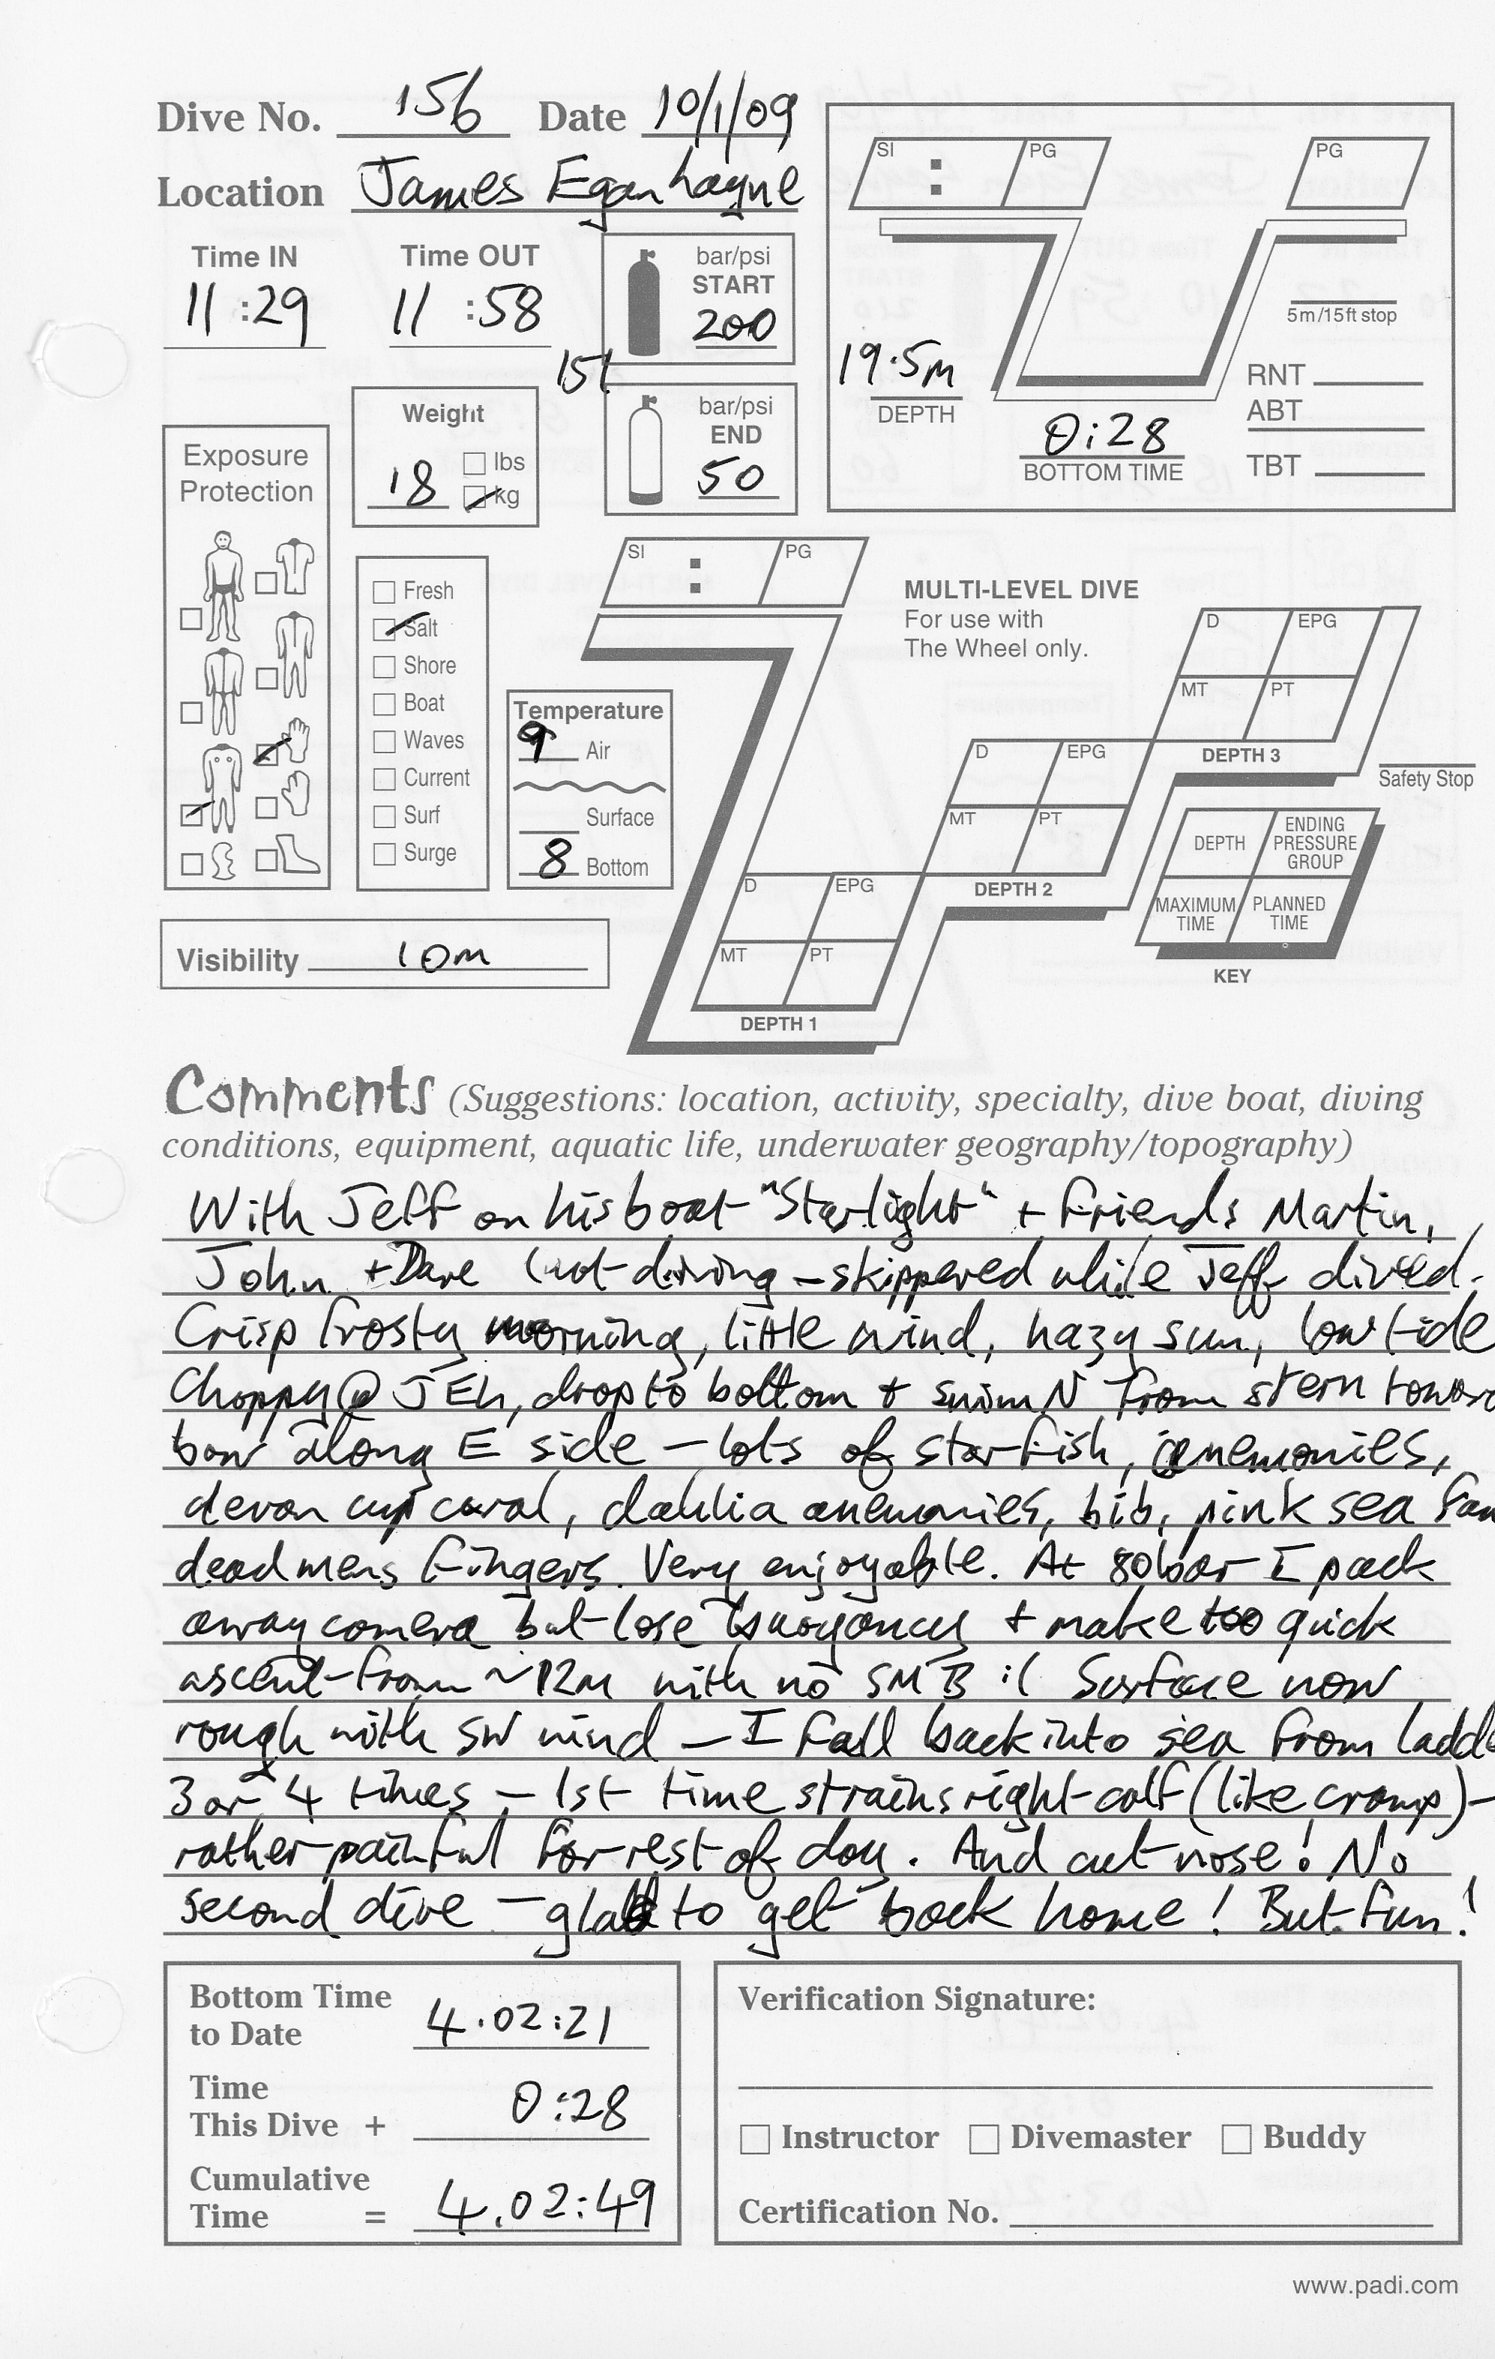 Dive No. 156 Date 10/1/09
Location James Egan hayne
Time IN Time OUT
11:29 11:58
bar/psi
START
200
15l
bar/psi
END
50
SI : PG
PG
5m/15ft stop
19.5m
DEPTH
0:28
BOTTOM TIME
RNT
ABT
TBT
Exposure
Protection
Weight
18
lbs
kg
Fresh
Salt
Shore
Boat
Waves
Current
Surf
Surge
Temperature
9 Air
Surface
8 Bottom
Visibility 10m
SI : PG
MULTI-LEVEL DIVE
For use with
The Wheel only.
D EPG
MT PT
DEPTH 3
Safety Stop
D EPG
MT PT
DEPTH 2
D EPG
MT PT
DEPTH 1
DEPTH
ENDING
PRESSURE
GROUP
MAXIMUM
TIME
PLANNED
TIME
KEY
Comments (Suggestions: location, activity, specialty, dive boat, diving
conditions, equipment, aquatic life, underwater geography/topography)
With Jeff on his boat "Starlight" + friends Martin,
John + Dave (not diving - skippered while Jeff dived.
Crisp frosty morning, little wind, hazy sun, low tide
Choppy @ JEL, drop to bottom + swim N from stern towar
bow along E side - lots of starfish, anemonies,
devon cup coral, dahlia anemonies, bib, pink sea fan
dead mens fingers. Very enjoyable. At 80bar I pack
away camera but lose buoyancy + make too quick
ascent from ~12m with no SMB :( Surface now
rough with SW wind - I fall back into sea from ladde
3 or 4 times - 1st time strains right calf (like cramp) -
rather painful for rest of day. And cut nose! No
second dive - glad to get back home! But fun!
Bottom Time
to Date 4.02:21
Time
This Dive + 0:28
Cumulative
Time = 4.02:49
Verification Signature:
Instructor Divemaster Buddy
Certification No.
www.padi.com